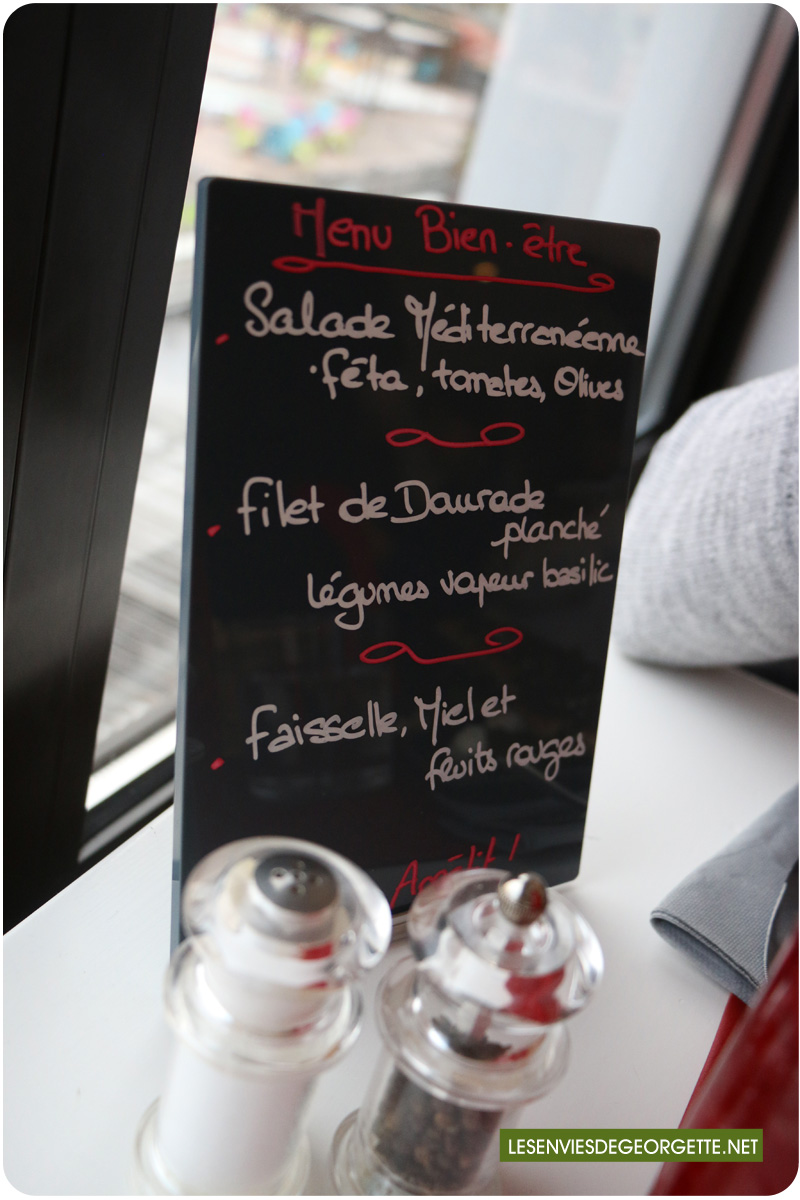 Menu Bien-être
Salade Méditerranéenne
·fêta, tomates, Olives
filet de Daurade
planché
légumes vapeur basilic
faisselle, Miel et
fruits rouges
Appétit !
LESENVIESDEGEORGETTE.NET